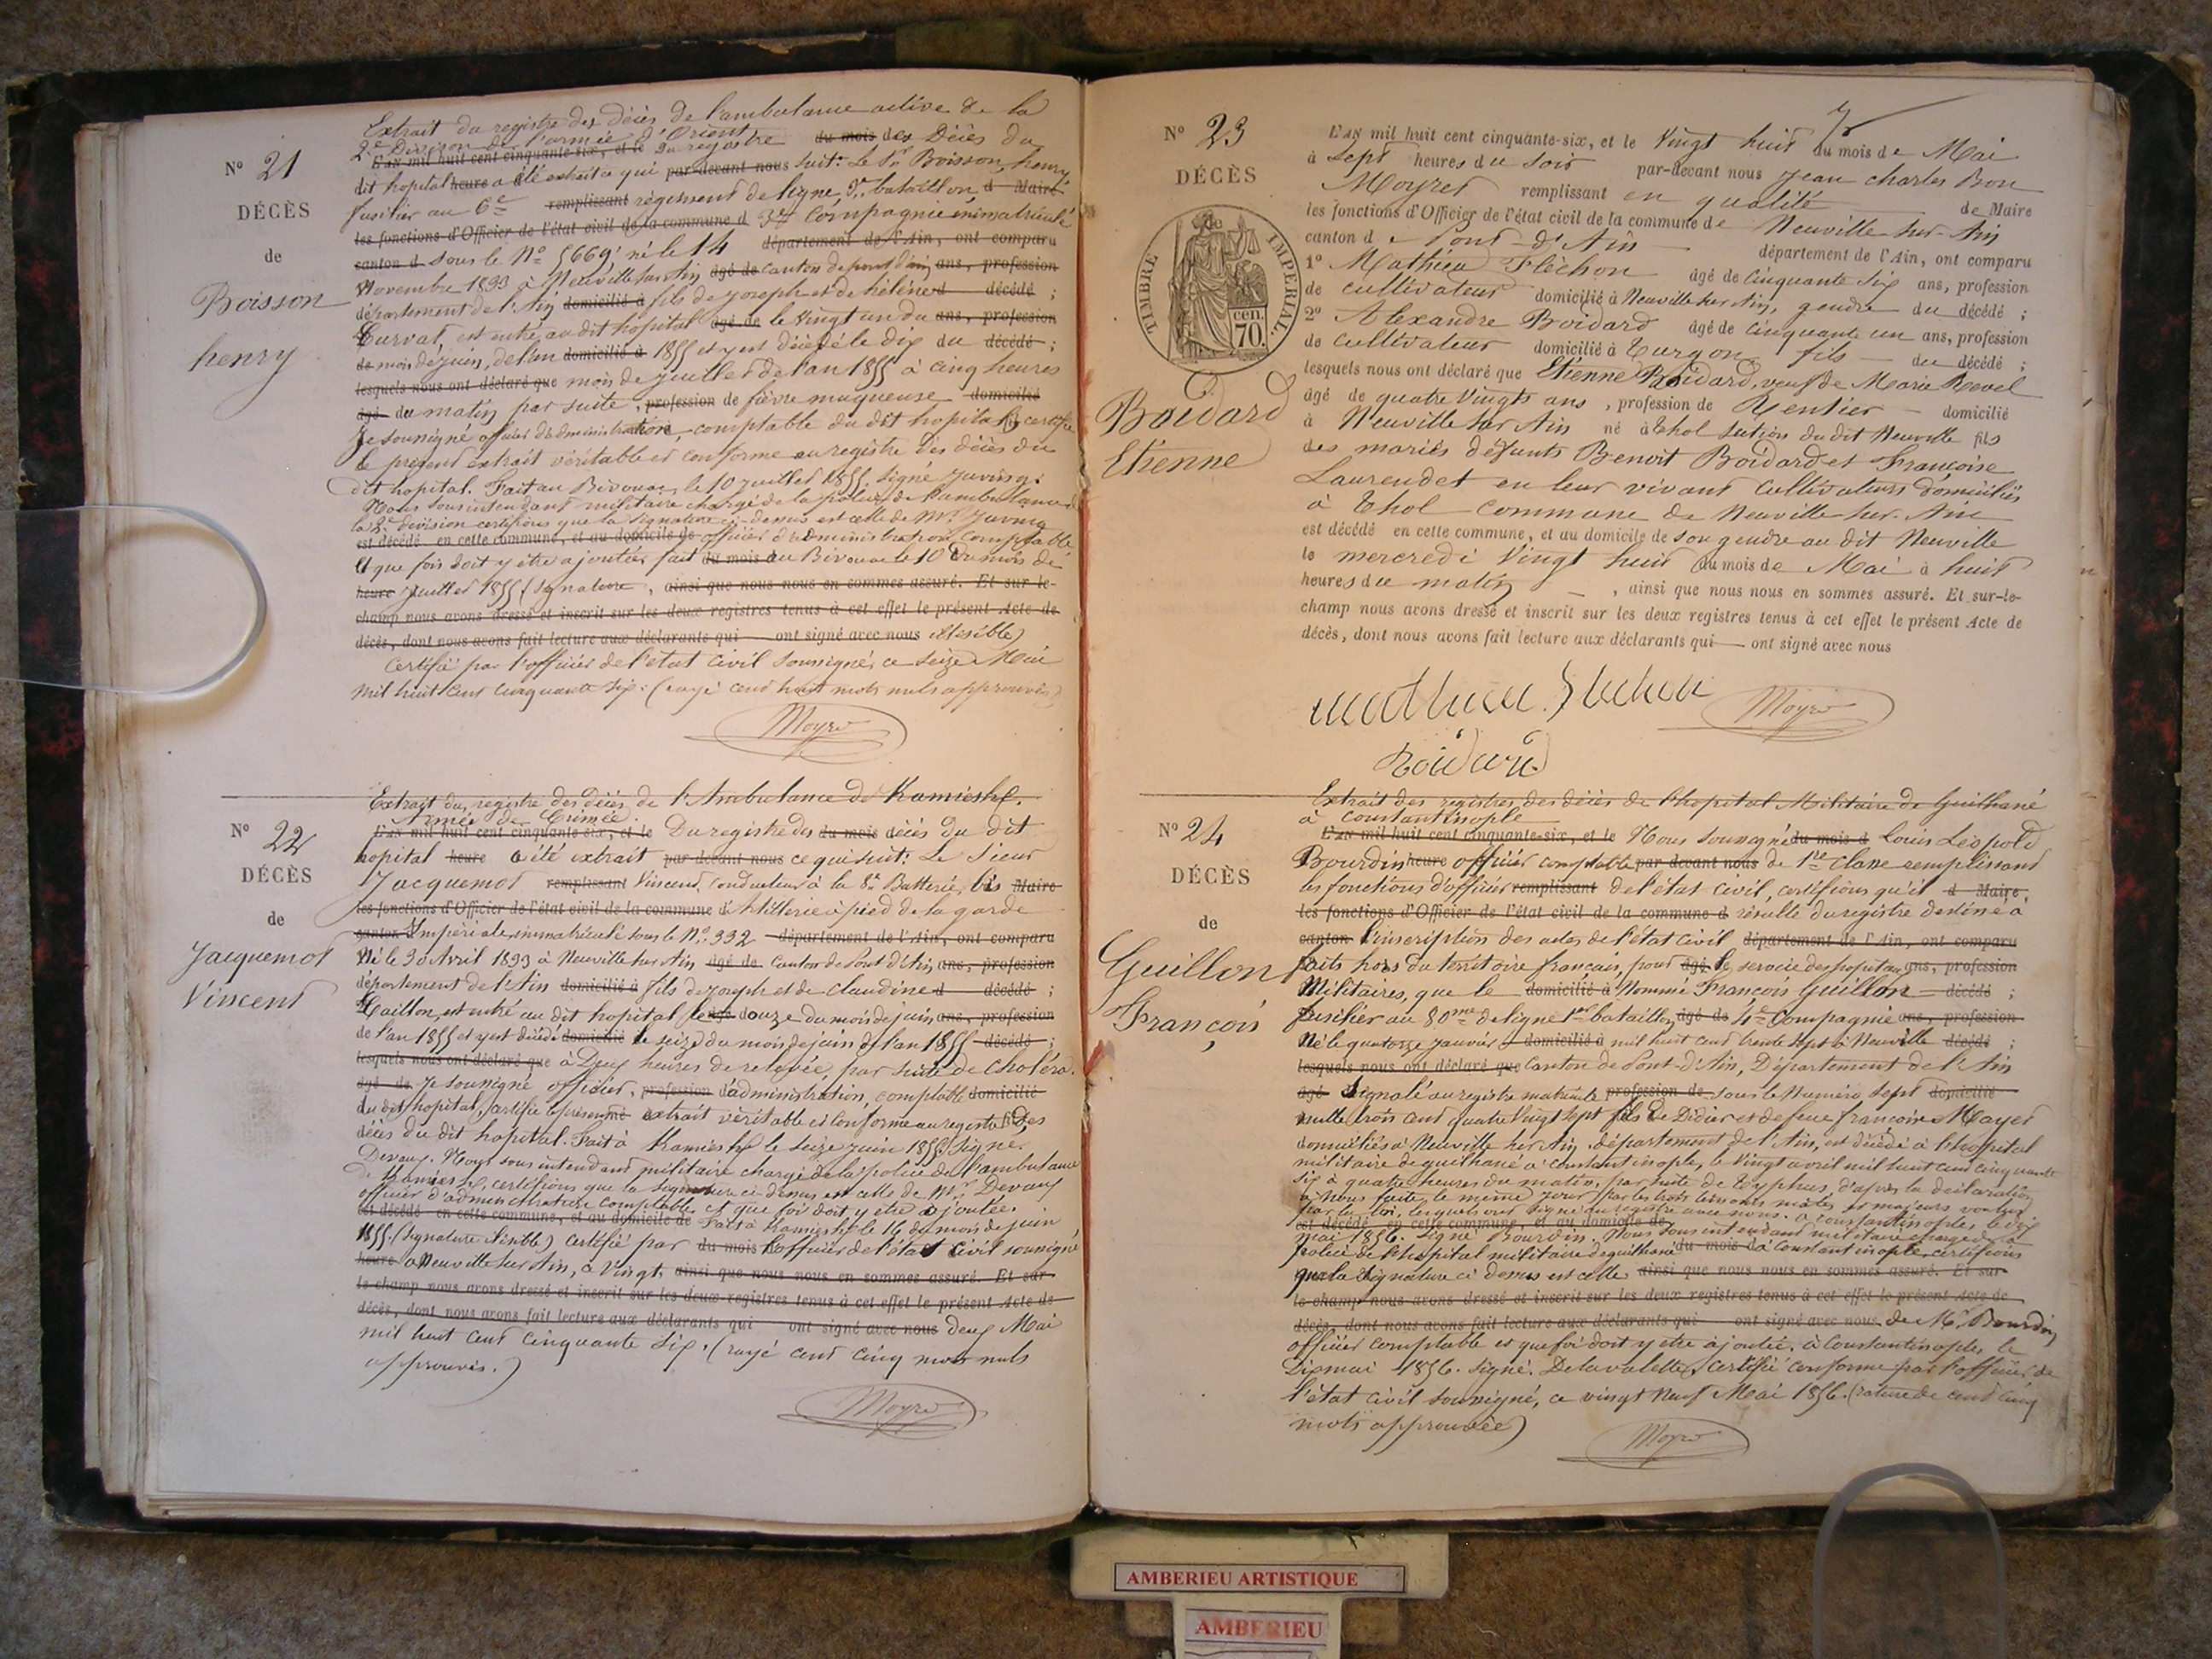 N° 21
DÉCÈS
de
Boisson
henry
Extrait du registre des décès de l'ambulance active de la
2e Division de l'armée d'Orient
L'AN mil huit cent cinquante-six, et le Du registre du mois des Décès du
dit hopital heure a été extrait ce qui par-devant nous suit: Le Sr Boisson, henry
fusilier au 6e remplissant régiment de ligne, 2e bataillon, d Maire
les fonctions d'Officier de l'état civil de la commune d 3e Compagnie immatriculé
canton d sous le N° 5669, né le 14 département de l'Ain, ont comparu
Novembre 1833 à Neuville sur Ain agé de canton de pont d'ain ans, profession
département de l'Ain domicilié à fils de joseph et de hélène d décédé ;
Curvat, est entré au dit hopital agé de le vingt un du ans, profession
de mois de juin, de l'an domicilié à 1855 et y est décédé le dix du décédé ;
lesquels nous ont déclaré que mois de juillet de l'an 1855 à cinq heures
agé du matin par suite, profession de fièvre muqueuse domicilié
Je soussigné officier d'administration, comptable du dit hopital certifie
le présent extrait véritable et conforme au registre des décès du
dit hopital. Fait au Bivouac, le 10 juillet 1855. Signé
Nous sous intendant militaire chargé de la police de l'ambulance de
la 2e division certifions que la signature ci-dessus est celle de Mr
est décédé en cette commune, et au domicile de officier d'administration, comptable
et que foi doit y être ajoutée, fait du mois au Bivouac le 10 du mois de
heure juillet 1855 (signature, ainsi que nous nous en sommes assuré. Et sur-le-
champ nous avons dressé et inscrit sur les deux registres tenus à cet effet le présent Acte de
décès, dont nous avons fait lecture aux déclarants qui ont signé avec nous illisible)
Certifié par l'officier de l'état civil soussigné, ce seize Mai
mil huit cent cinquante six. (rayé cent huit mots nuls approuvés)
Moyre
N° 22
DÉCÈS
de
Jacquemot
Vincent
Extrait du registre des décès de l'Ambulance de Kamiesh.
Armée de Crimée.
L'AN mil huit cent cinquante-six, et le Du registre des du mois décès du dit
hopital heure a été extrait par devant nous ce qui suit: Le Sieur
Jacquemot remplissant Vincent, conducteur à la 8e Batterie, bis Maire
les fonctions d'Officier de l'état civil de la commune d'Artillerie à pied de la garde
canton Impériale, immatriculé sous le N° 332 département de l'Ain, ont comparu
Né le 30 Avril 1833 à Neuville sur Ain agé de Canton de Pont d'Ain ans, profession
département de l'Ain domicilié à fils de joseph et de Claudine d décédé ;
est entré au dit hopital le agé douze du mois de juin ans, profession
de l'an 1855 et y est décédé domicilié le seize du mois de juin de l'an 1855 décédé ;
lesquels nous ont déclaré que à Deux heures de relevée, par suite de choléra.
agé de Je soussigné officier, profession d'administration, comptable domicilié
du dit hopital, certifie le présent né extrait véritable et conforme au registre fils Des
décès du dit hopital. Fait à Kamiesh le seize juin 1855. Signé.
Devaux. Nous sous intendant militaire chargé de la police de l'ambulance
de Kamiesh, certifions que la signature ci-dessus est celle de Mr Devaux
officier d'administration comptable et que foi doit y être ajoutée.
est décédé en cette commune, et au domicile de Fait à Kamiesh le 16 du mois de juin
1855. (Signature illisible) Certifié par du mois l'officier de l'état civil soussigné
heure à Neuville sur Ain, ce vingt ainsi que nous nous en sommes assuré. Et sur
le champ nous avons dressé et inscrit sur les deux registres tenus à cet effet le présent Acte de
décès, dont nous avons fait lecture aux déclarants qui ont signé avec nous deux Mai
mil huit cent cinquante six. (rayé cent cinq mots nuls
approuvés.)
Moyre
N° 23
DÉCÈS
TIMBRE IMPERIAL
de
cen.
70.
Boidard
Etienne
L'AN mil huit cent cinquante-six, et le Vingt huit du mois de Mai
à Sept heures du Soir par-devant nous Jean Charles Bon
Moyret remplissant en qualité de Maire
les fonctions d'Officier de l'état civil de la commune de Neuville sur Ain
canton de Pont-d'Ain département de l'Ain, ont comparu
1° Mathieu Fléchon âgé de Cinquante Six ans, profession
de cultivateur domicilié à Neuville sur Ain, gendre du décédé ;
2° Alexandre Boidard âgé de cinquante un ans, profession
de cultivateur domicilié à Turgon fils du décédé ;
lesquels nous ont déclaré que Etienne Boidard, veuf de Marie Revel
âgé de quatre Vingts ans, profession de Rentier domicilié
à Neuville sur Ain né à Thol section du dit Neuville fils
des mariés défunts Benoit Boidard et Françoise
Laurendet en leur vivant Cultivateurs domiciliés
à Thol commune de Neuville sur Ain
est décédé en cette commune, et au domicile de son gendre au dit Neuville
le mercredi Vingt huit du mois de Mai à huit
heures du matin, ainsi que nous nous en sommes assuré. Et sur-le-
champ nous avons dressé et inscrit sur les deux registres tenus à cet effet le présent Acte de
décès, dont nous avons fait lecture aux déclarants qui ont signé avec nous
mathieu flechon Moyre
Boidard
N° 24
DÉCÈS
de
Guillon
François
Extrait des registres des décès de l'hopital Militaire de Gulhané
à Constantinople
L'AN mil huit cent cinquante-six, et le Nous soussigné du mois d Louis Léopold
Bourdin heure officier comptable par devant nous de 1re classe remplissant
les fonctions d'officier remplissant de l'état civil, certifions qu'il d Maire,
les fonctions d'Officier de l'état civil de la commune d résulte du registre destiné à
canton l'inscription des actes de l'état civil département de l'Ain, ont comparu
faits hors du territoire français, pour agé le service des hopitaux ans, profession
Militaires, que le domicilié à Nommé François Guillon décédé ;
fusilier au 80me de ligne 1er bataillon agé de 4e Compagnie ans, profession
Né le quatorze janvier domicilié à mil huit cent trente sept à Neuville décédé ;
lesquels nous ont déclaré que Canton de Pont-d'Ain, Département de l'Ain
agé Signalé au registre matricule profession de sous le Numéro sept domicilié
mille trois cent quatre vingt sept fils de Didier et de feue françoise Mayet
domiciliés à Neuville sur Ain, département de l'Ain, est décédé à l'hopital
militaire de gulhané à Constantinople, le Vingt avril mil huit cent cinquante
six à quatre heures du matin, par suite de Typhus, d'après la déclaration
à nous faite le même jour par les trois témoins mâles et majeurs voulus
par la loi, lesquels ont signé au registre avec nous. à Constantinople, le dix
est décédé en cette commune, et au domicile de
mai 1856. Signé Bourdin. Nous sous intendant militaire chargé de la
police de l'hopital militaire de gulhané du mois d à Constantinople, certifions
que la Signature ci dessus est celle ainsi que nous nous en sommes assuré. Et sur
le champ nous avons dressé et inscrit sur les deux registres tenus à cet effet le présent Acte de
décès, dont nous avons fait lecture aux déclarants qui ont signé avec nous de Mr Bourdin
officier comptable et que foi doit y être ajoutée, à Constantinople, le
Dix mai 1856. signé. Delavalette, certifié conforme par l'officier de
l'état civil soussigné, ce vingt neuf Mai 1856. (rature de cent cinq
mots approuvée)
Moyre
AMBERIEU ARTISTIQUE
AMBERIEU